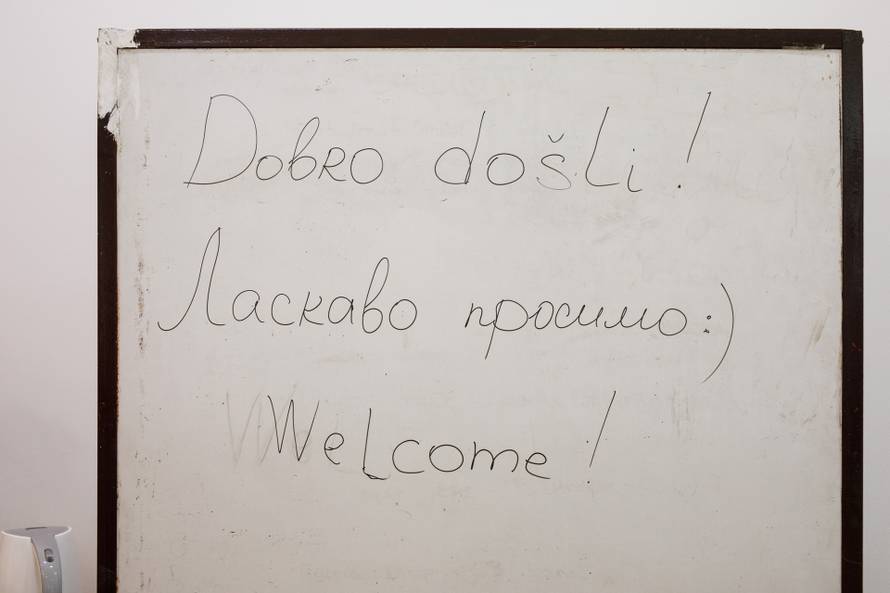 Dobro došli!
Ласкаво просимо:)
Welcome!